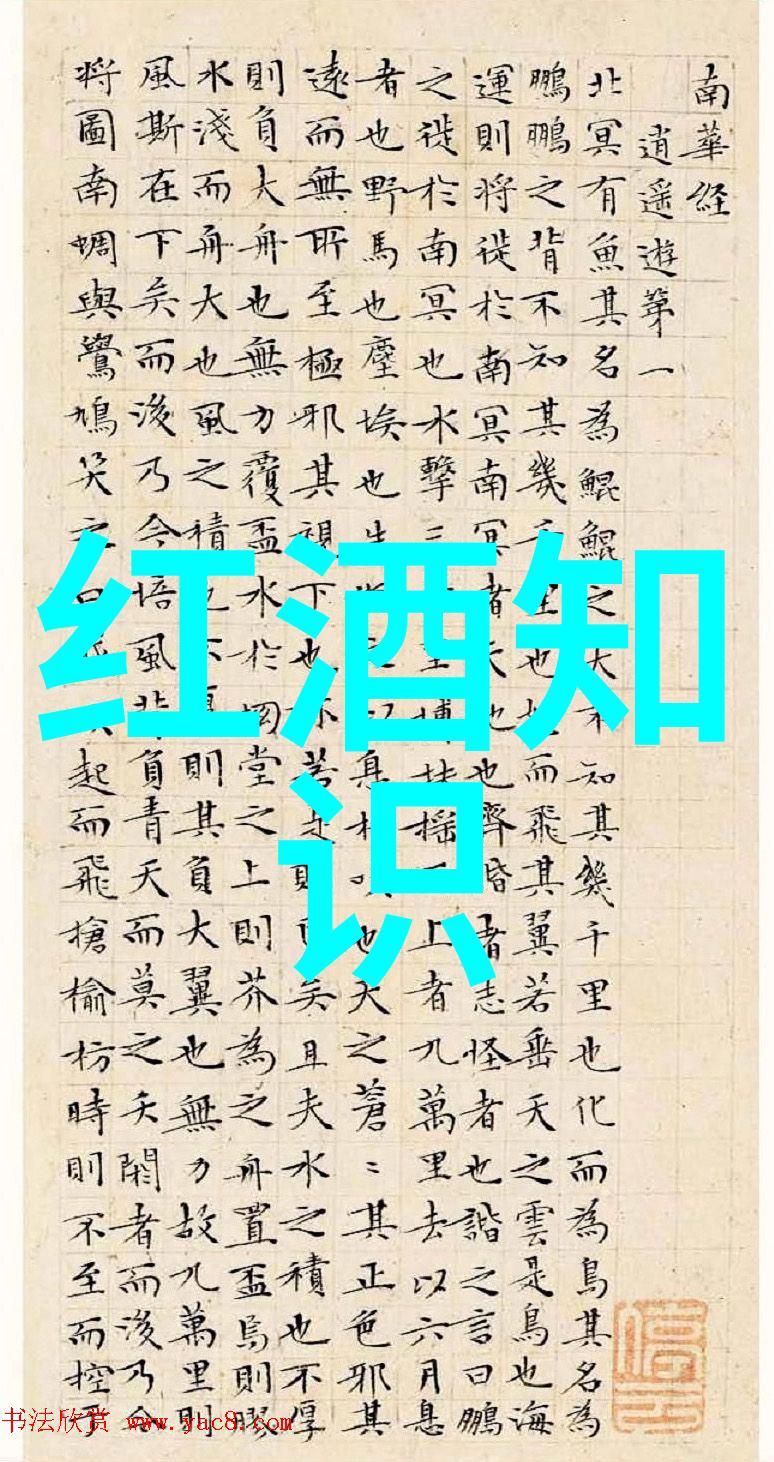 南華経
逍遥遊第一
北冥有魚其名為鯤鯤之大不知其幾千里也化而為鳥其名為
鵬鵬之背不知其幾千里也而飛其翼若垂天之雲是鳥也海
運則将徙於南冥南冥者天池也齊諧者志怪者也諧之言曰鵬
之徙於南冥也水擊三里搏扶摇而上者九萬里去以六月息
者也野馬也塵埃也生物以息相吹也天之蒼〻其正色邪其
遠而無所至極邪其視下也亦若是則已矣且夫水之積也不厚
則負大舟也無力覆盃水於坳堂之上則芥為之舟置盃焉則膠
水淺而舟大也風之積也不厚則其負大翼也無力故九萬里則
風斯在下矣而後乃今培風背負青天而莫之夭閼者而後乃今
将圖南蜩與鷽鳩笑之曰起而飛搶榆枋時則不至而控於
红酒知
识
书法欣赏 www.yac8.com